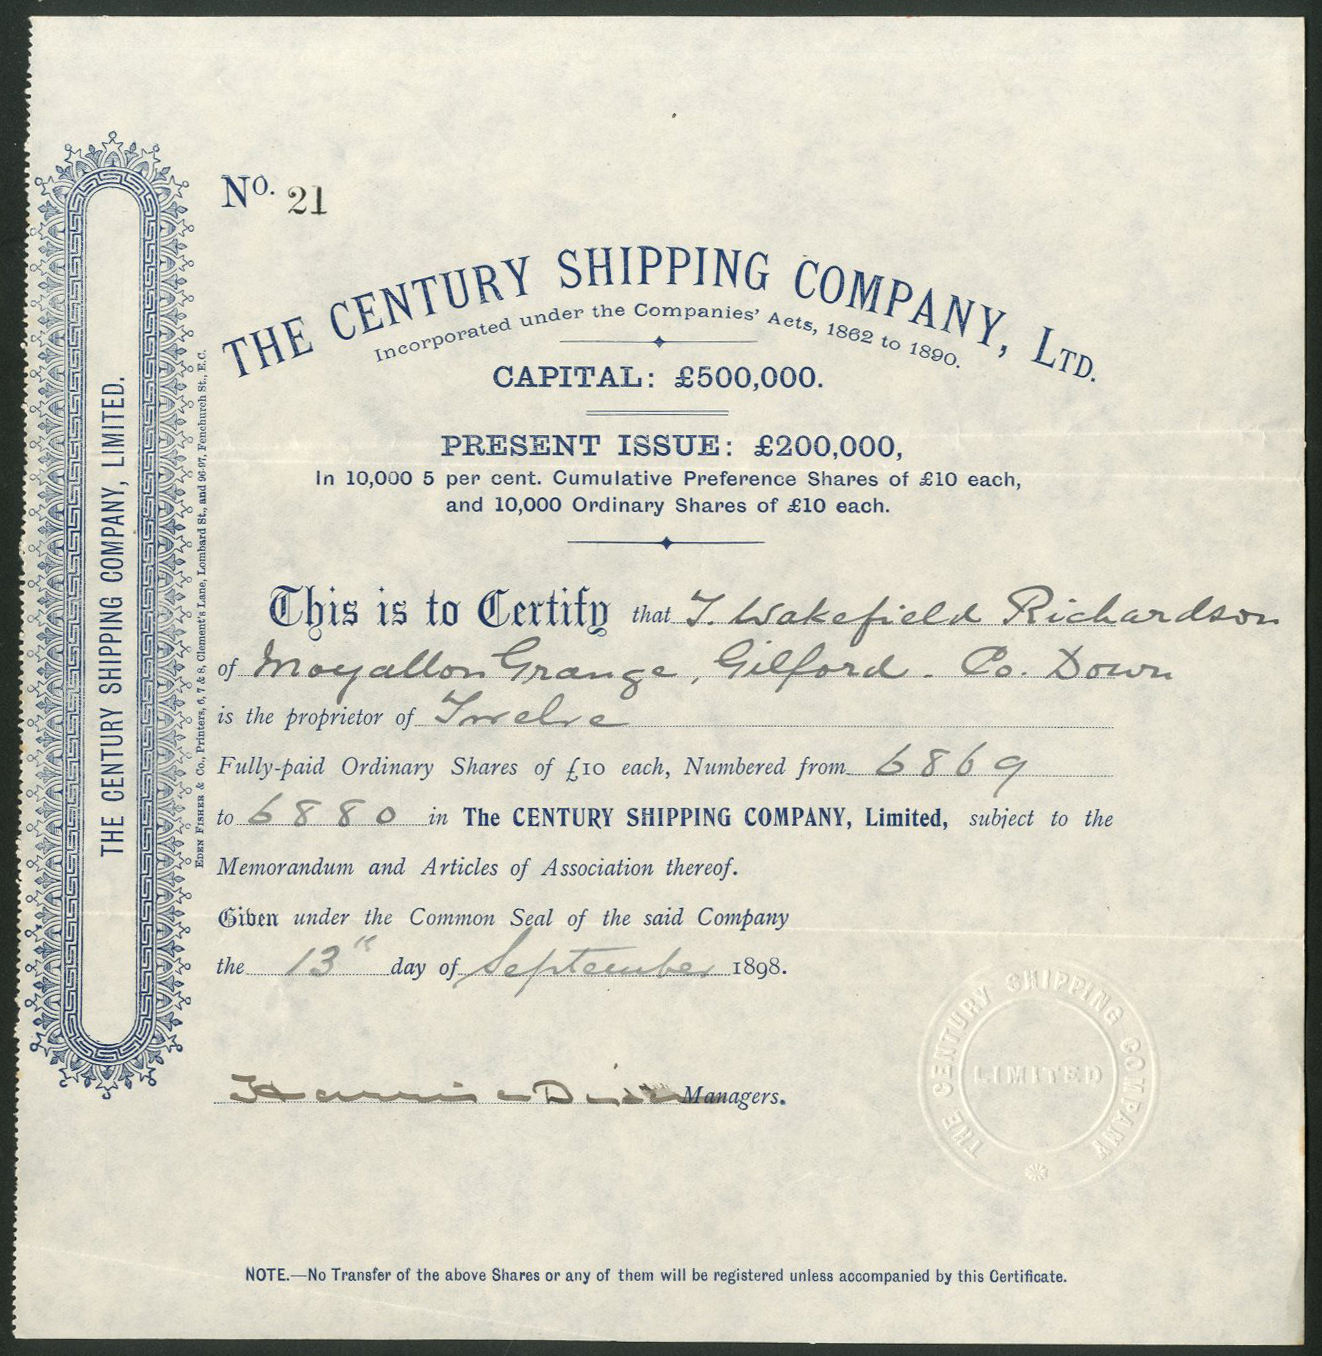 No. 21
THE CENTURY SHIPPING COMPANY, LTD.
Incorporated under the Companies' Acts, 1862 to 1890.
CAPITAL: £500,000.
PRESENT ISSUE: £200,000,
In 10,000 5 per cent. Cumulative Preference Shares of £10 each,
and 10,000 Ordinary Shares of £10 each.
This is to Certify that T. Wakefield Richardson
of Moyallon Grange, Gilford. Co. Down
is the proprietor of Twelve
Fully-paid Ordinary Shares of £10 each, Numbered from 6869
to 6880 in The CENTURY SHIPPING COMPANY, Limited, subject to the
Memorandum and Articles of Association thereof.
Given under the Common Seal of the said Company
the 13th day of September 1898.
Harris & Dixon Managers.
THE CENTURY SHIPPING COMPANY
LIMITED
NOTE.—No Transfer of the above Shares or any of them will be registered unless accompanied by this Certificate.
THE CENTURY SHIPPING COMPANY, LIMITED.
EDEN FISHER & Co., Printers, 6, 7 & 8, Clement's Lane, Lombard St., and 96-97, Fenchurch St., E.C.